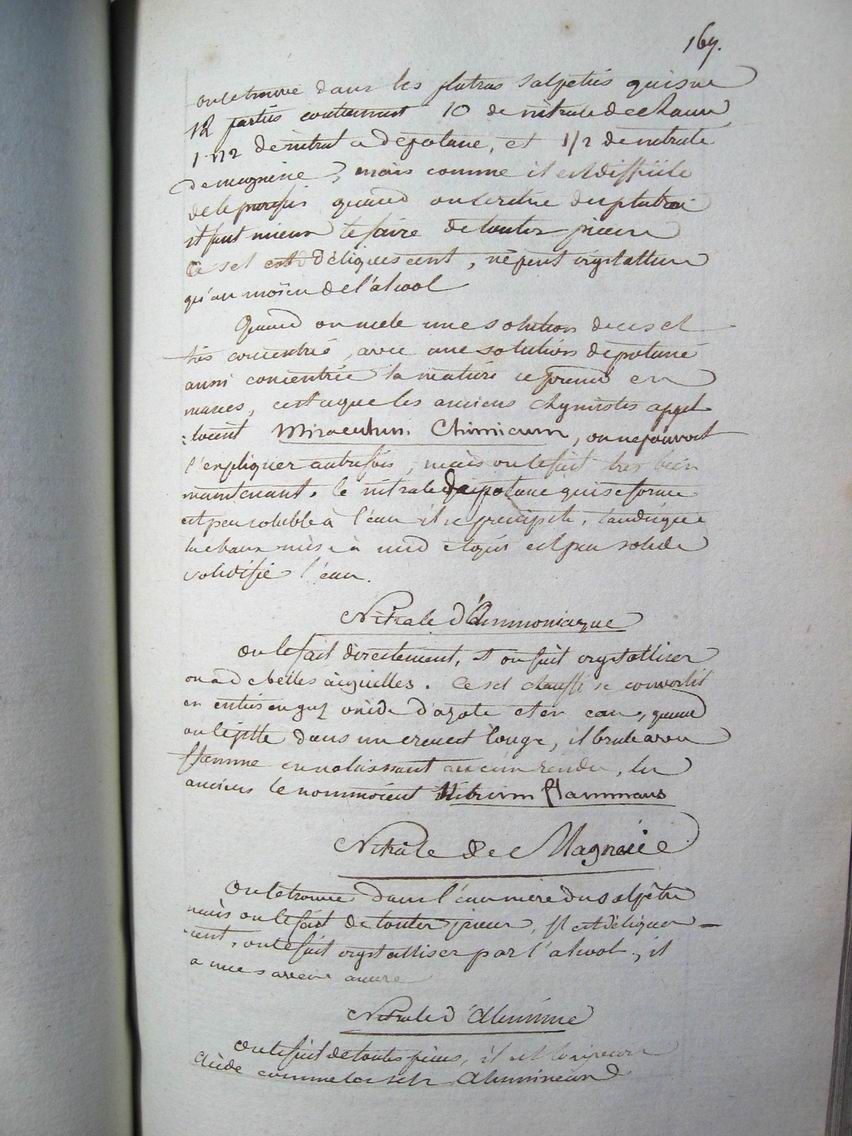 169.
on le trouve dans les platras salpetrés qui sur
12 parties contiennent 10 de nitrate de chaux
1 1/2 de nitrate de potasse, et 1/2 de nitrate
de magnésie, mais comme il est difficile
de le purifier quand on le retire des platras
il faut mieux le faire de toutes pièces
Ce sel est déliquescent, ne peut crystalliser
qu'au moien de l'alcool
Quand on mele une solution de ce sel
très concentré, avec une solution de potasse
aussi concentrée la matière se prend en
masses, c'est ce que les anciens chymistes appel
:loient Miraculum Chimicum, on ne pouvoit
l'expliquer autrefois, mais on le fait très bien
maintenant. le nitrate de potasse qui se forme
est peu soluble à l'eau il se precipite, tandis que
la chaux mise à nud et qui est peu solide
solidifie l'eau.
Nitrate d'Ammoniaque
On le fait directement, et on fait crystalliser
on a de belles aiguilles. Ce sel chauffé se convertit
en entier en gaz oxide d'azote et en eau, quand
on le jette dans un creuset rouge, il brule avec
flamme en ne laissant aucun residu, les
anciens le nommoient Nitrum flammans
Nitrate de Magnésie
On le trouve dans l'eau mère du salpêtre
mais on le fait de toutes pièces, Il est déliques-
cent, on le fait crystalliser par l'alcool, il
a une saveur amère
Nitrate d'Alumine
On le fait de toutes pièces, il est toujours
acide comme les sels alumineux